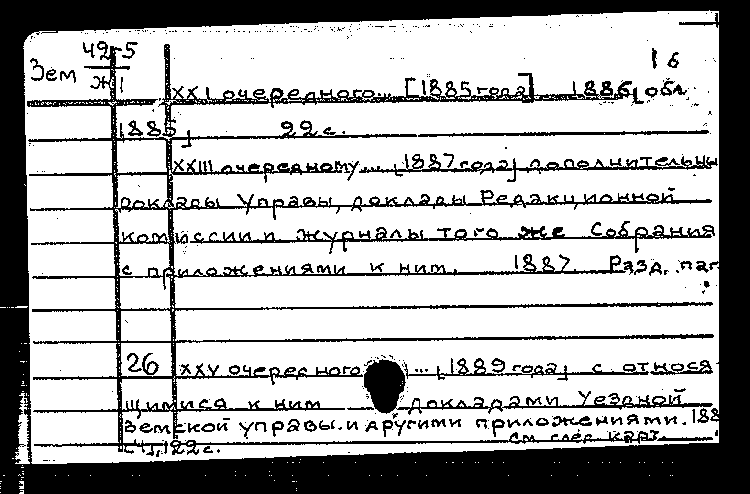 Зем 42-5
Ж1
16
XXI очередного... [1885 года] 1886, обл
1885, 22 с.
XXIII очередному... [1887 года] дополнительны
доклады Управы, доклады Редакционной
комиссии и журналы того же Собрания
с приложениями к ним. 1887. Разд. паг
26 XXV очередного ... [1889 года] с относя
щимися к ним докладами Уездной
Земской управы и другими приложениями. 188
[4], 122 с.
см след карт.